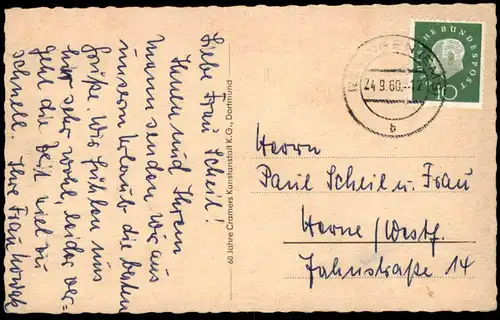 Liebe Frau Scheil!
Ihnen und Ihrem
Mann senden wir aus
unserm Urlaub die besten
Grüße. Wir fühlen uns
hier sehr wohl, leider ver-
geht die Zeit viel zu
schnell. Ihre Frau Nowak
60 Jahre Cramers Kunstanstalt K.G., Dortmund
24.9.60.-12
b
DEUTSCHE BUNDESPOST
10
Herrn
Paul Scheil u. Frau
Herne/Westf.
Jahnstraße 14